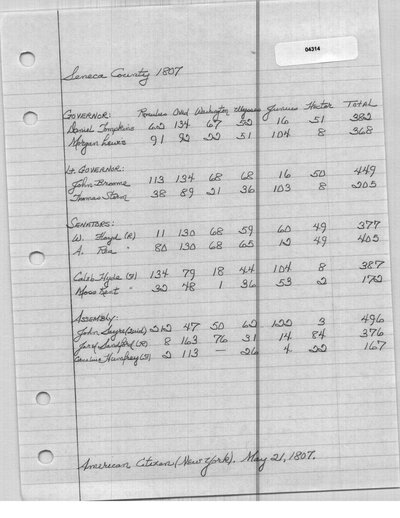 04314
Seneca County 1807
GOVERNOR: Romulus Ovid Washington Ulysses Junius Hector TOTAL
Daniel Tompkins 62 134 67 52 16 51 382
Morgan Lewis 91 92 22 51 104 8 368
Lt. GOVERNOR:
John Broome 113 134 68 68 16 50 449
Thomas Storm 38 89 21 36 103 8 205
SENATORS:
W. Floyd (R) 11 130 68 59 60 49 377
A. " 80 130 68 65 12 49 405
Caleb Hyde 134 79 18 44 104 8 387
Moss Kent " 32 48 1 36 53 2 172
ASSEMBLY:
John Sayre 212 47 50 62 122 3 496
Jared Sandford (R) 8 163 76 31 14 84 376
Humfrey 2 113 — 26 4 22 167
American Citizen (New York). May 21, 1807.